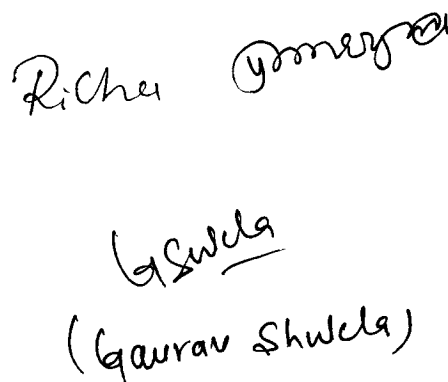 Richa
GShukla
(Gaurav Shukla)